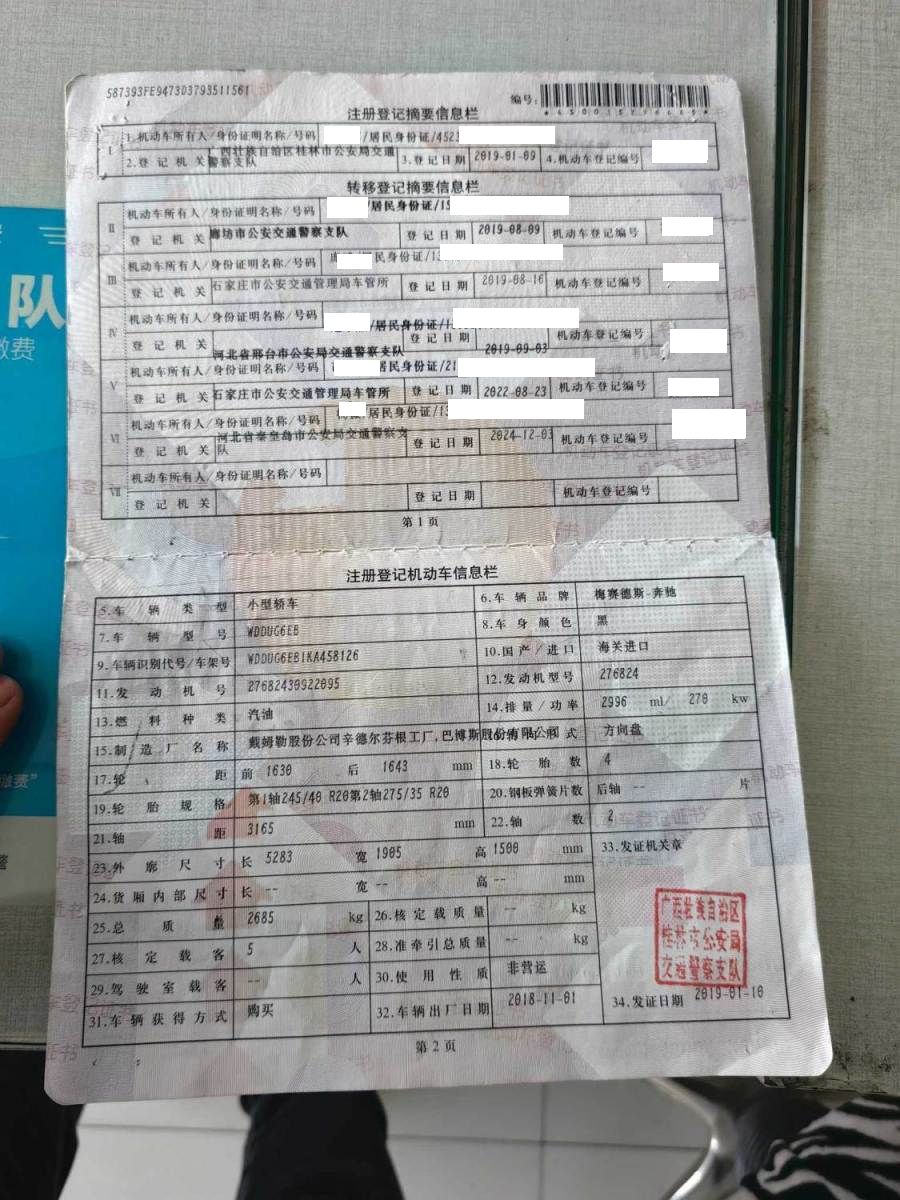 587393FE9473D3793511561
编号:
注册登记摘要信息栏
I
1.机动车所有人/身份证明名称/号码 /居民身份证/452
2.登记机关 广西壮族自治区桂林市公安局交通警察支队 3.登记日期 2019-01-09 4.机动车登记编号
转移登记摘要信息栏
II
机动车所有人/身份证明名称/号码 /居民身份证/15
登记机关 廊坊市公安交通警察支队 登记日期 2019-08-09 机动车登记编号
III
机动车所有人/身份证明名称/号码 民身份证/1
登记机关 石家庄市公安交通管理局车管所 登记日期 2019-08-16 机动车登记编号
IV
机动车所有人/身份证明名称/号码 /居民身份证/1
登记机关 河北省邢台市公安局交通警察支队 登记日期 2019-09-03 机动车登记编号
V
机动车所有人/身份证明名称/号码 居民身份证/21
登记机关 石家庄市公安交通管理局车管所 登记日期 2022-08-23 机动车登记编号
VI
机动车所有人/身份证明名称/号码 居民身份证/13
登记机关 河北省秦皇岛市公安局交通警察支队 登记日期 2024-12-03 机动车登记编号
VII
机动车所有人/身份证明名称/号码
登记机关 登记日期 机动车登记编号
第1页
注册登记机动车信息栏
5.车辆类型 小型轿车 6.车辆品牌 梅赛德斯-奔驰
7.车辆型号 WDDUG6EB 8.车身颜色 黑
9.车辆识别代号/车架号 WDDUG6EB1KA458126 10.国产/进口 海关进口
11.发动机号 27682430922095 12.发动机型号 276824
13.燃料种类 汽油 14.排量/功率 2996 ml/ 270 kw
15.制造厂名称 戴姆勒股份公司辛德尔芬根工厂,巴博斯股份有限公司 16.转向形式 方向盘
17.轮距 前 1630 后 1643 mm 18.轮胎数 4
19.轮胎规格 第1轴245/40 R20第2轴275/35 R20 20.钢板弹簧片数 后轴 -- 片
21.轴距 3165 mm 22.轴数 2
23.外廓尺寸 长 5283 宽 1905 高 1500 mm 33.发证机关章
24.货厢内部尺寸 长 -- 宽 -- 高 -- mm
25.总质量 2685 kg 26.核定载质量 -- kg
27.核定载客 5 人 28.准牵引总质量 -- kg
29.驾驶室载客 -- 人 30.使用性质 非营运
31.车辆获得方式 购买 32.车辆出厂日期 2018-11-01 34.发证日期 2019-01-10
广西壮族自治区
桂林市公安局
交通警察支队
第2页
队
缴费